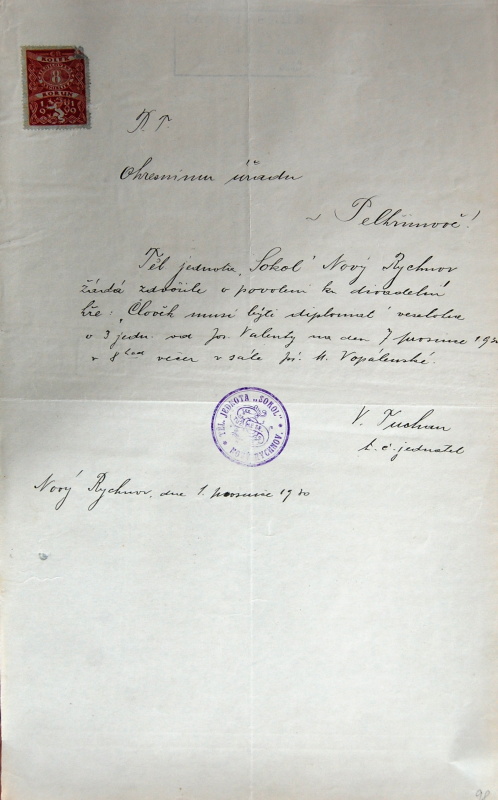 KOLEK
8
KORUN
1919
P. T.
Okresnímu úřadu
v Pelhřimově!
Těl. jednota „Sokol" Nový Rychnov
žádá zdvořile o povolení ku divadelní
hře: „Člověk musí býti diplomat" veselohra
o 3 jedn. od Jos. Valenty na den 7 prosince 1930
v 8 hod večer v sále pí. M. Vopálenské.
TĚL. JEDNOTA „SOKOL"
NOVÝ RYCHNOV.
t. č. jednatel
Nový Rychnov, dne 1. prosince 1930